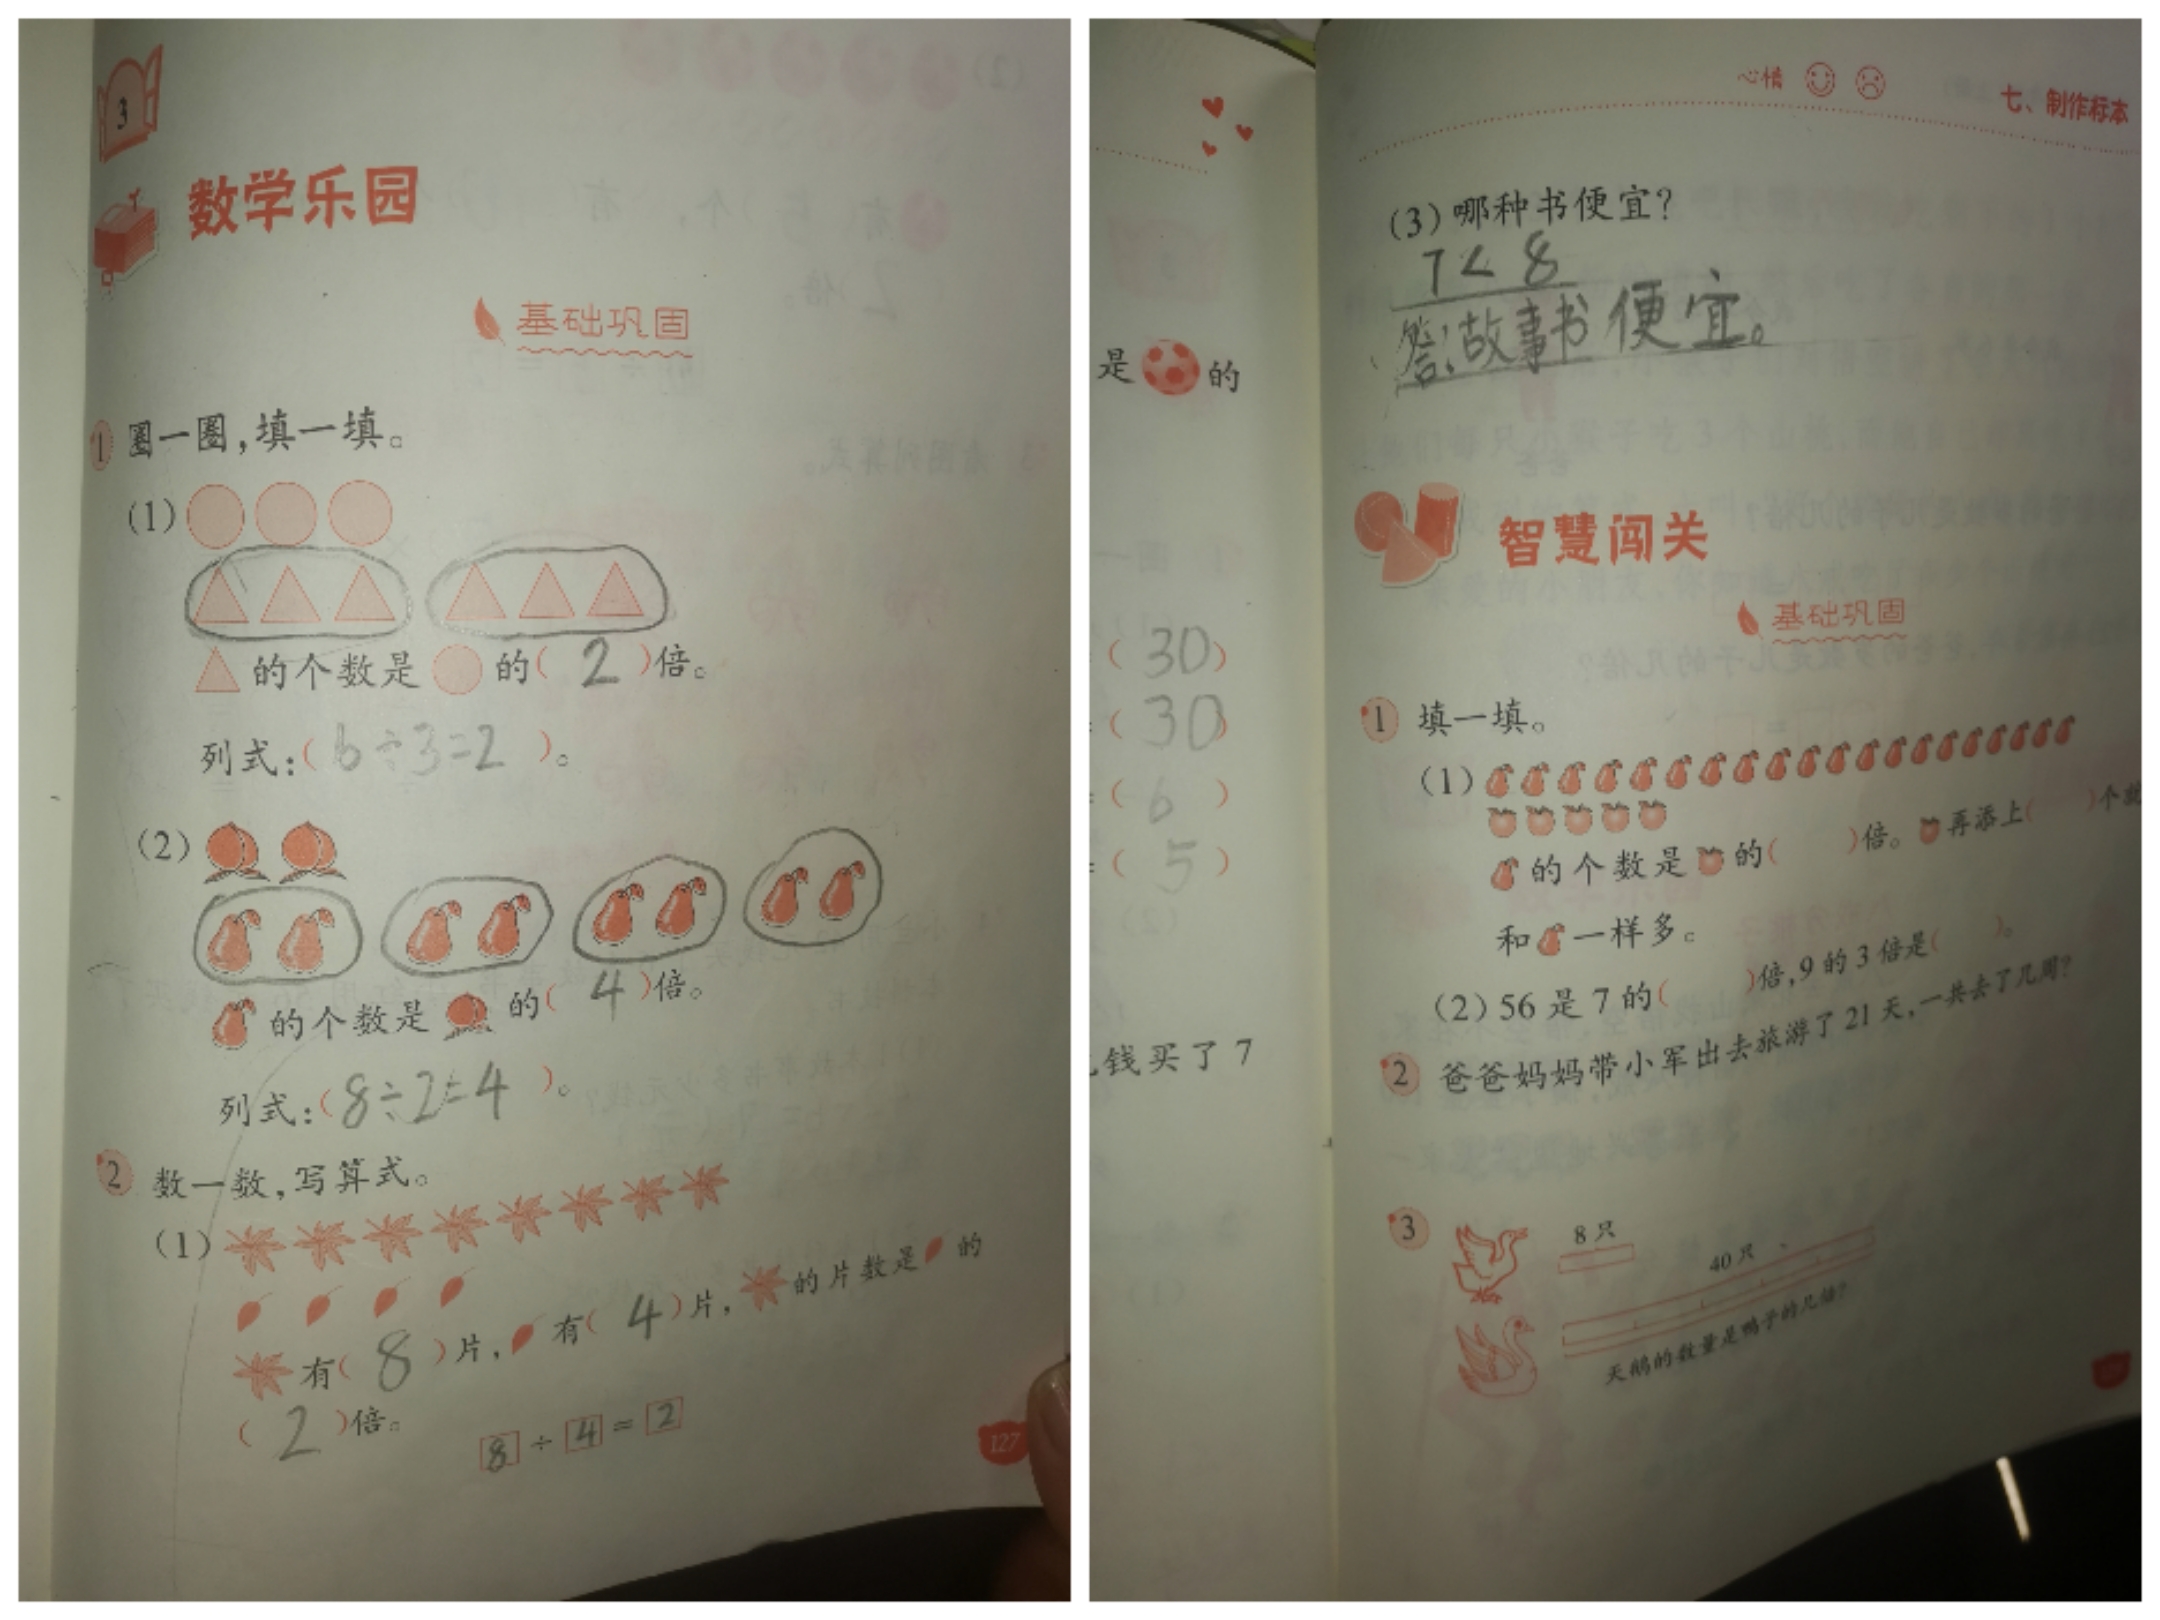 3
数学乐园
基础巩固
1 圈一圈,填一填。
(1)
的个数是 的( 2 )倍。
列式:( 6÷3=2 )。
(2)
的个数是 的( 4 )倍。
列式:( 8÷2=4 )。
2 数一数,写算式。
(1)
有( 8 )片, 有( 4 )片, 的片数是 的
( 2 )倍。
8 ÷ 4 = 2
127
是 的
( 30 )
( 30 )
( 6 )
( 5 )
钱买了 7
心情
七、制作标本
(3) 哪种书便宜?
7 < 8
答:故事书便宜。
智慧闯关
基础巩固
1 填一填。
(1)
的个数是 的( )倍。 再添上( )个就
和 一样多。
(2) 56 是 7 的( )倍,9 的 3 倍是( )。
2 爸爸妈妈带小军出去旅游了 21 天,一共去了几周?
3
8 只
40 只
天鹅的数量是鸭子的几倍?